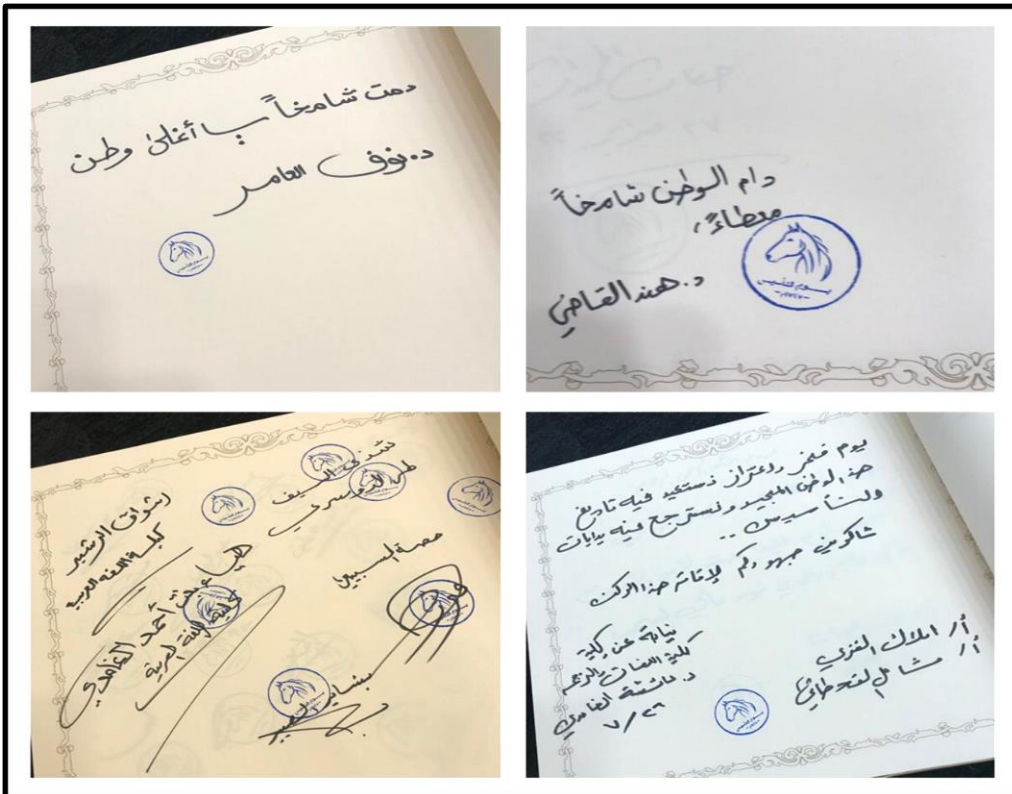 دمت شامخاً يا أغلى وطن
د. نوف العامر
دام الوطن شامخاً
معطاءً،
د. هند القاضي
يوم التأسيس
١٧٢٧م
شذى السيف
أشواق الرشيد
كلية اللغة العربية
حصة السبيعي
هيا عوض أحمد الغامدي
كلية اللغة العربية
يوم فخر واعتزاز نستعيد فيه تاريخ
هذا الوطن المجيد ونسترجع فيه بدايات
والتأسيس ..
شاكرين جهودكم لإقامة هذا الركن
نيابة عن كلية
كلية اللغات والترجمة
د. عائشة الغامدي
٧/٢٦
أ/ املاك العنزي
أ/ مشاعل القحطاني